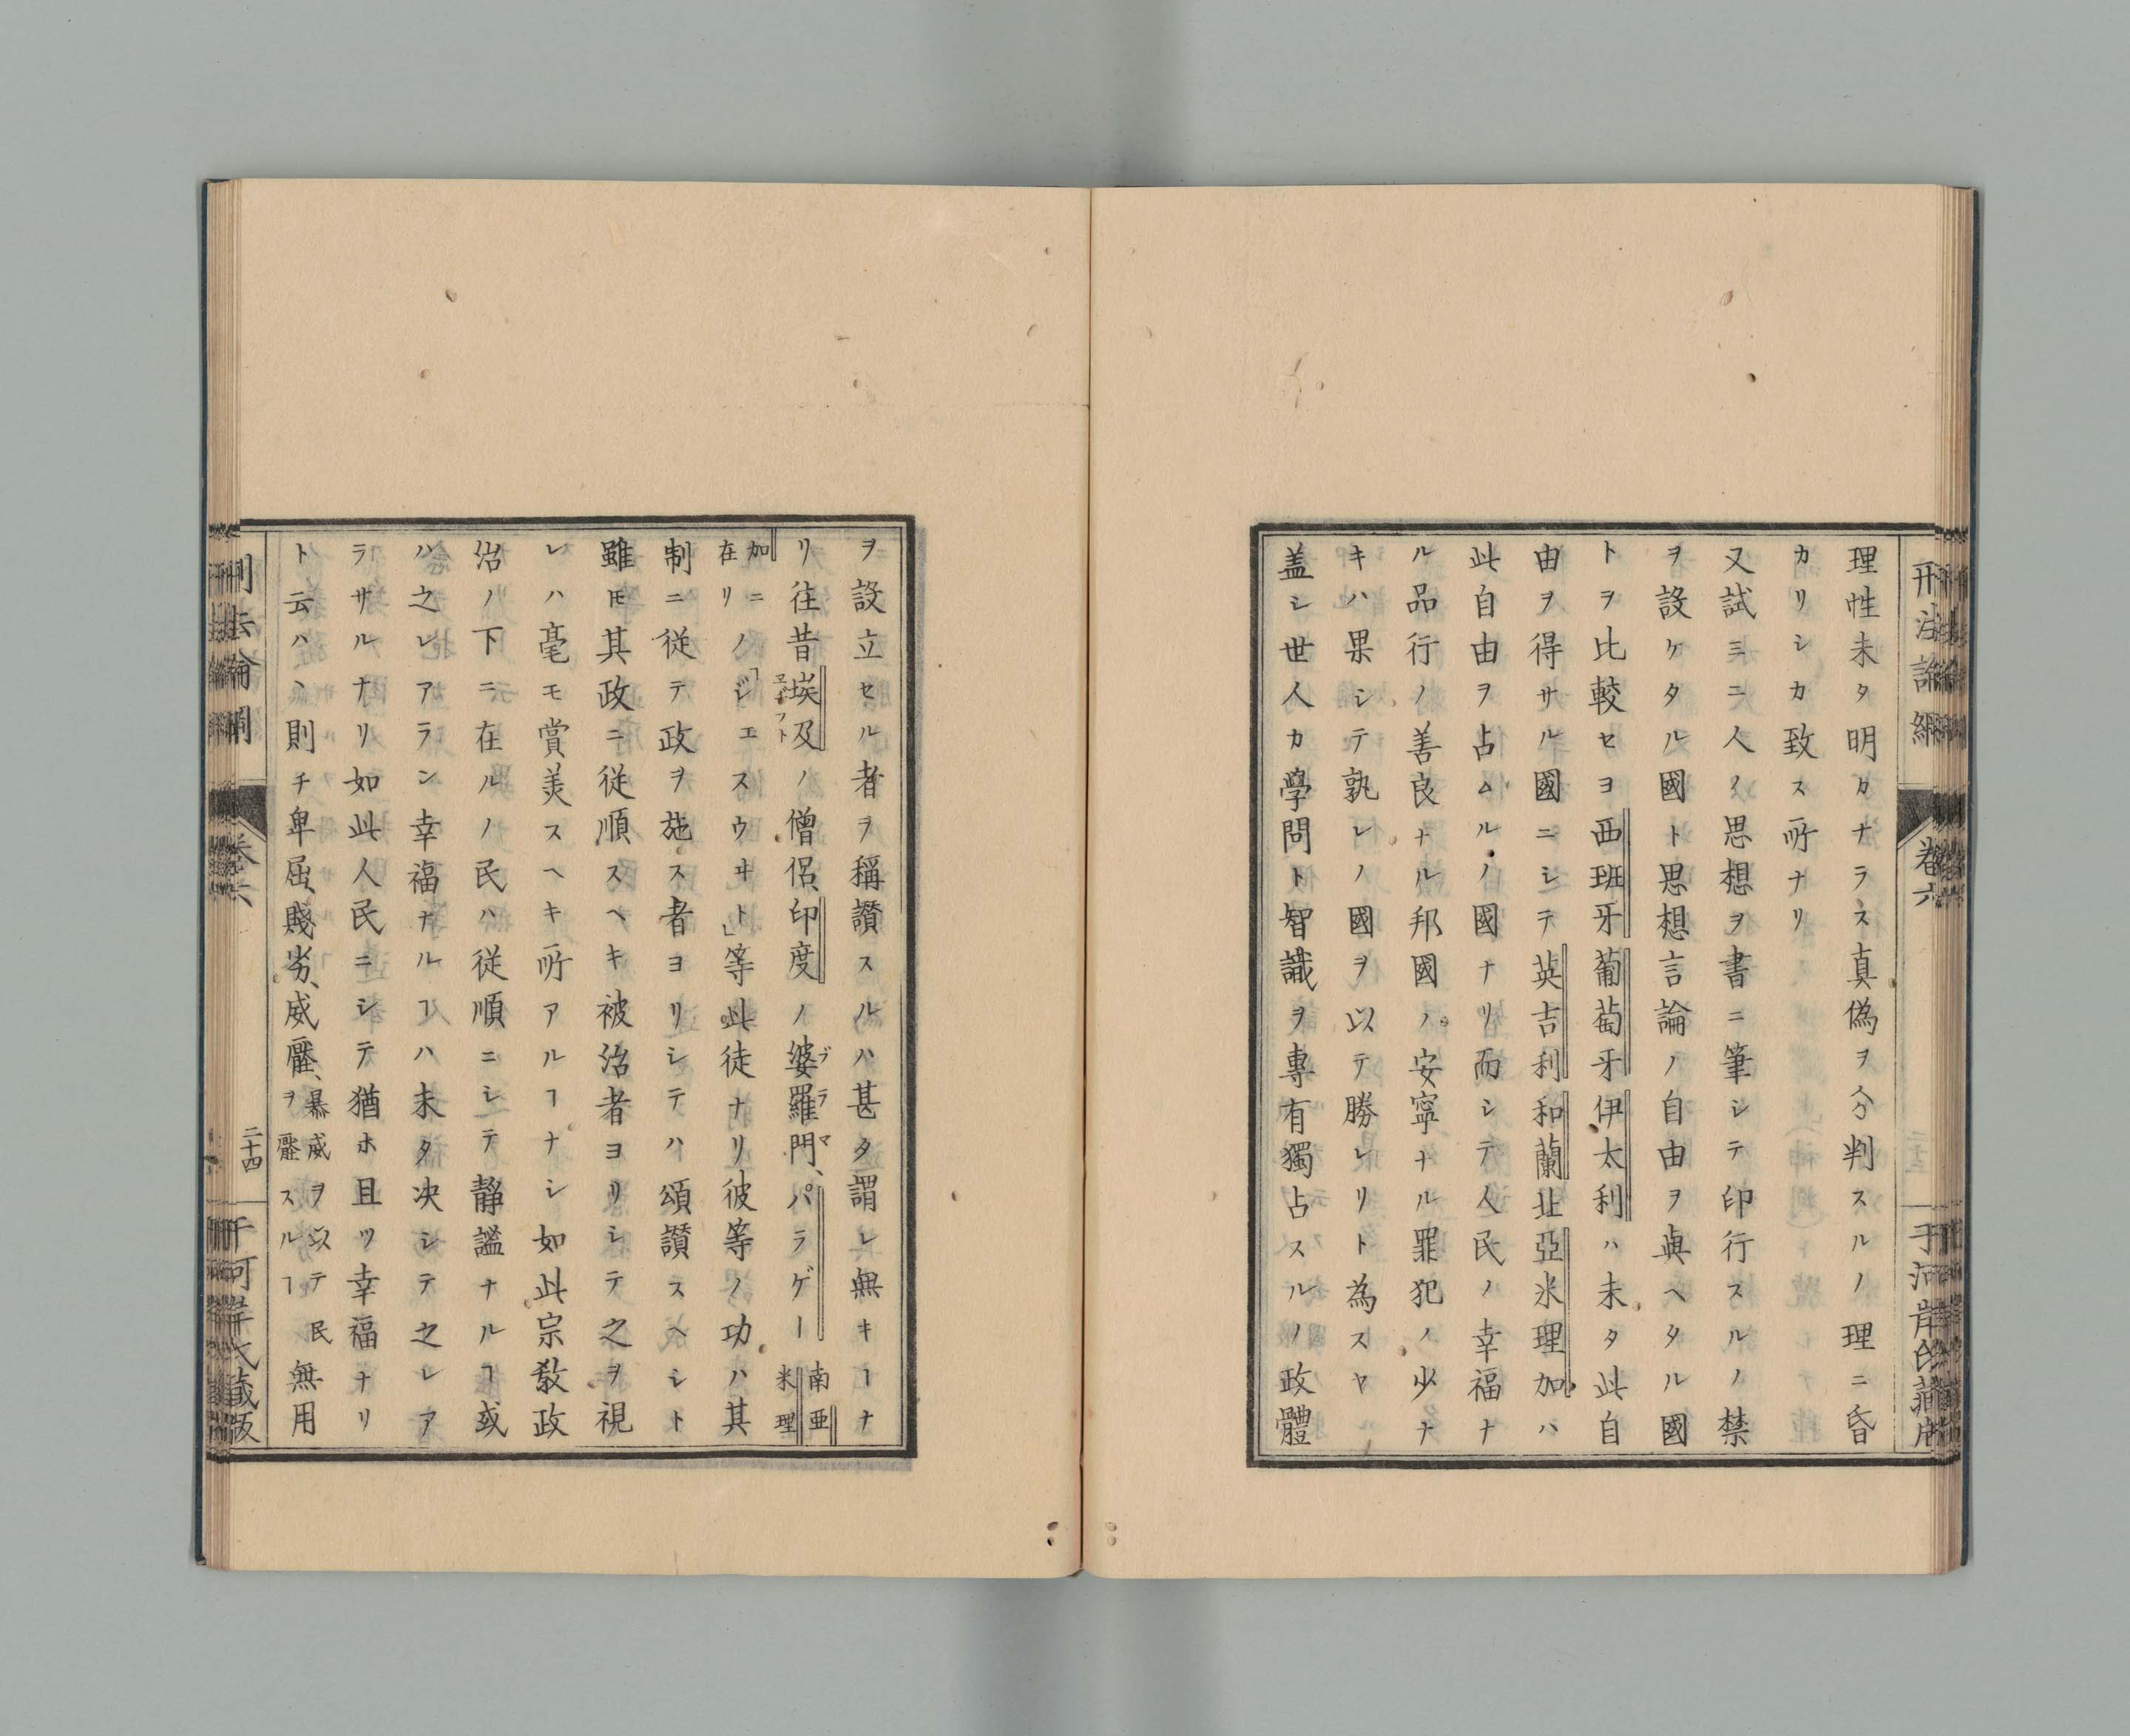 理性未タ明カナラス真偽ヲ分判スルノ理ニ昏
カリシカ致ス所ナリ
又試ミニ人ノ思想ヲ書ニ筆シテ印行スルノ禁
ヲ設ケタル國ト思想言論ノ自由ヲ與ヘタル國
トヲ比較セヨ西班牙葡萄牙伊太利ハ未タ此自
由ヲ得サル國ニシテ英吉利和蘭北亞米理加ハ
此自由ヲ占ムルノ國ナリ而シテ人民ノ幸福ナ
ル品行ノ善良ナル邦國ノ安寧ナル罪犯ノ少ナ
キハ果シテ孰レノ國ヲ以テ勝レリト為スヤ
盖シ世人カ學問ト智識ヲ專有獨占スルノ政體
ヲ設立セル者ヲ稱讚スルハ甚タ謂レ無キヿナ
リ往昔埃及ノ僧侶、印度ノ婆羅門、パラゲー南亜米理
加ニ在リノ「ジエスウヰト」等此徒ナリ彼等ノ功ハ其
制ニ従テ政ヲ施ス者ヨリシテハ頌讃スヘシト
雖𪜈其政ニ従順スヘキ被治者ヨリシテ之ヲ視
レハ毫モ賞美スヘキ所アルヿナシ如此宗教政
治ノ下ニ在ルノ民ハ従順ニシテ静謐ナルヿ或
ハ之レアラン幸福ナルヿハ未タ决シテ之レア
ラサルナリ如此人民ニシテ猶ホ且ツ幸福ナリ
ト云ハヽ則チ卑屈、賤劣、威壓、暴威ヲ以テ民ヲ壓スルヿ無用
卷六
二十四